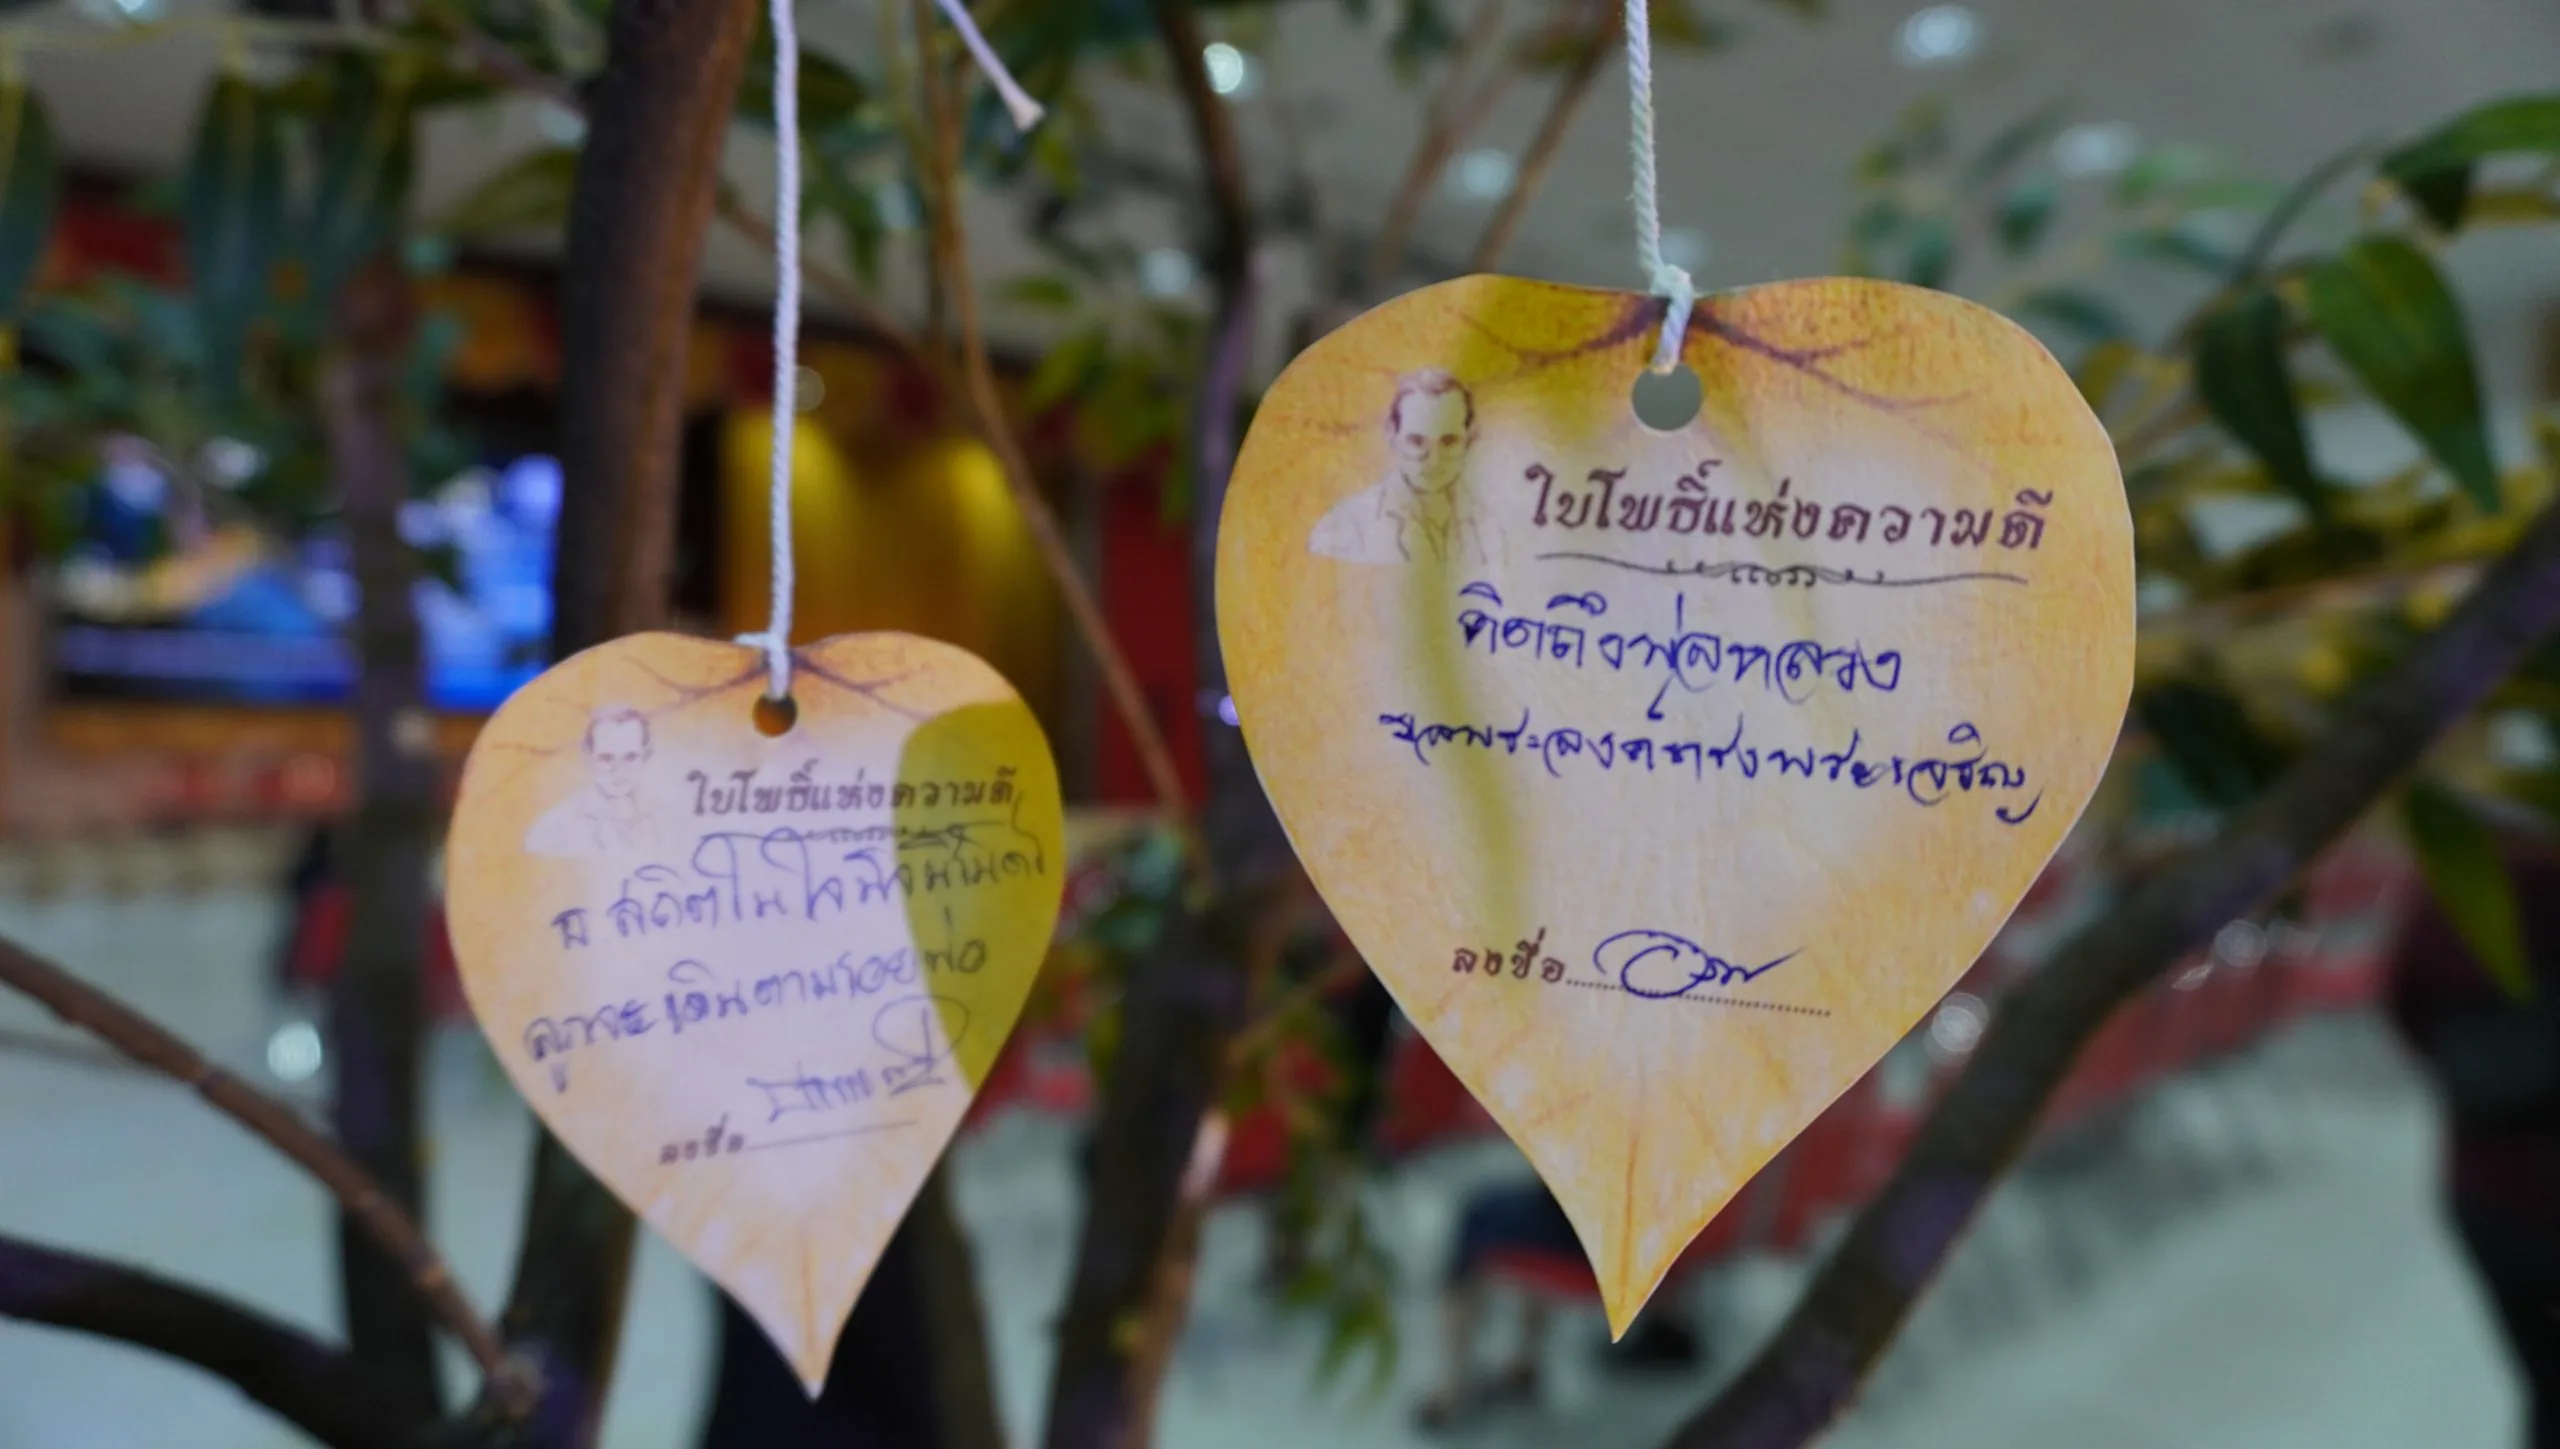 ใบโพธิ์แห่งความดี
สถิตในใจนิจนิรันดร์
ลูกจะเดินตามรอยพ่อ
ลงชื่อ
ใบโพธิ์แห่งความดี
คิดถึงพ่อหลวง
พระองค์ทรงพระเจริญ
ลงชื่อ